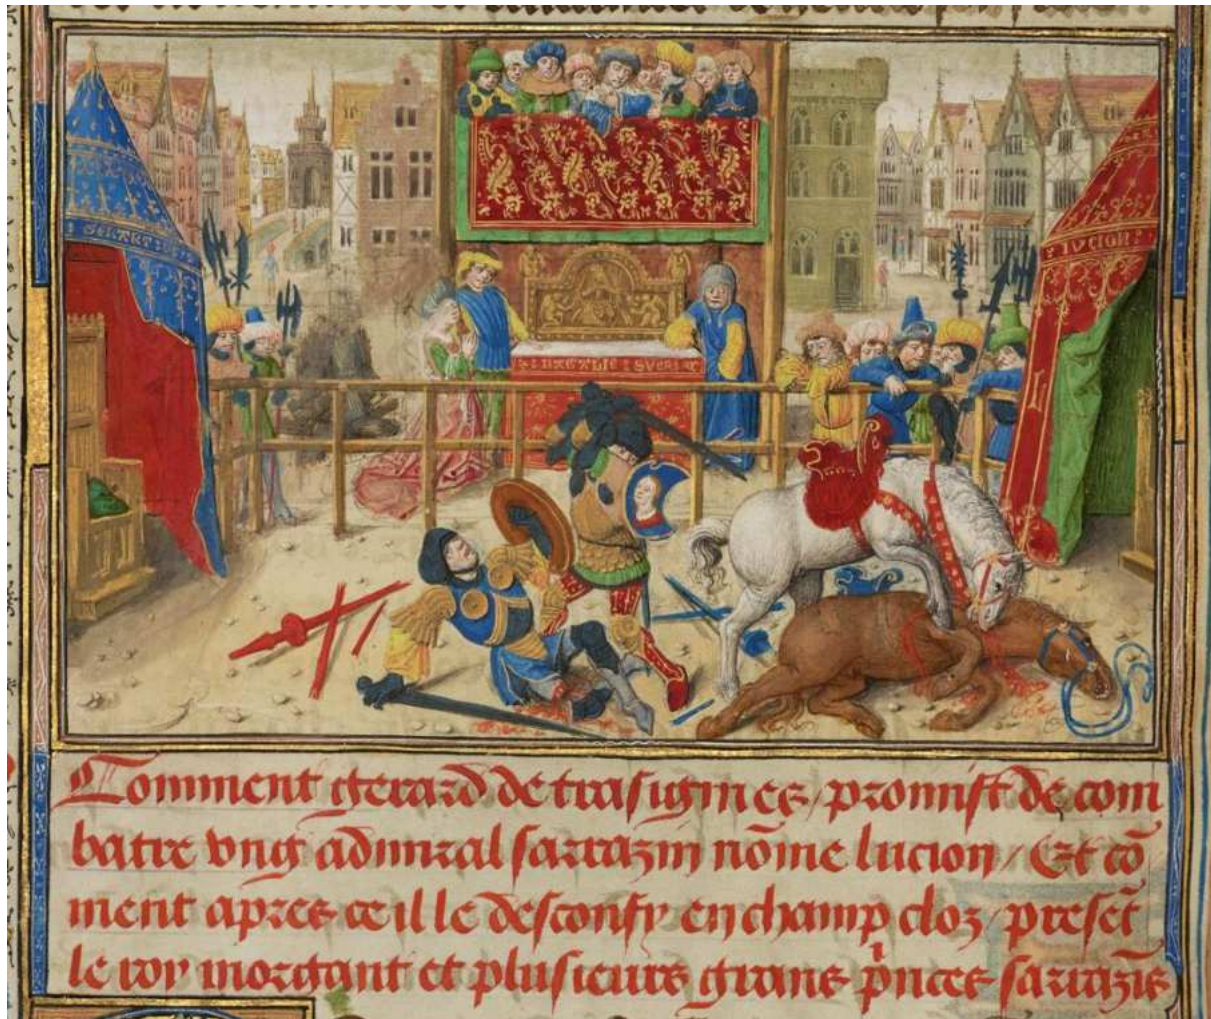 GERART
LUCION
Comment gerard de trasignies / promist de com
batre vng admiral sarrazin nõme lucion / Et cõ
ment apres ce il le desconfy en champ cloz / presẽt
le roy morgant et plusieurs grans p̃nces sarrazĩs